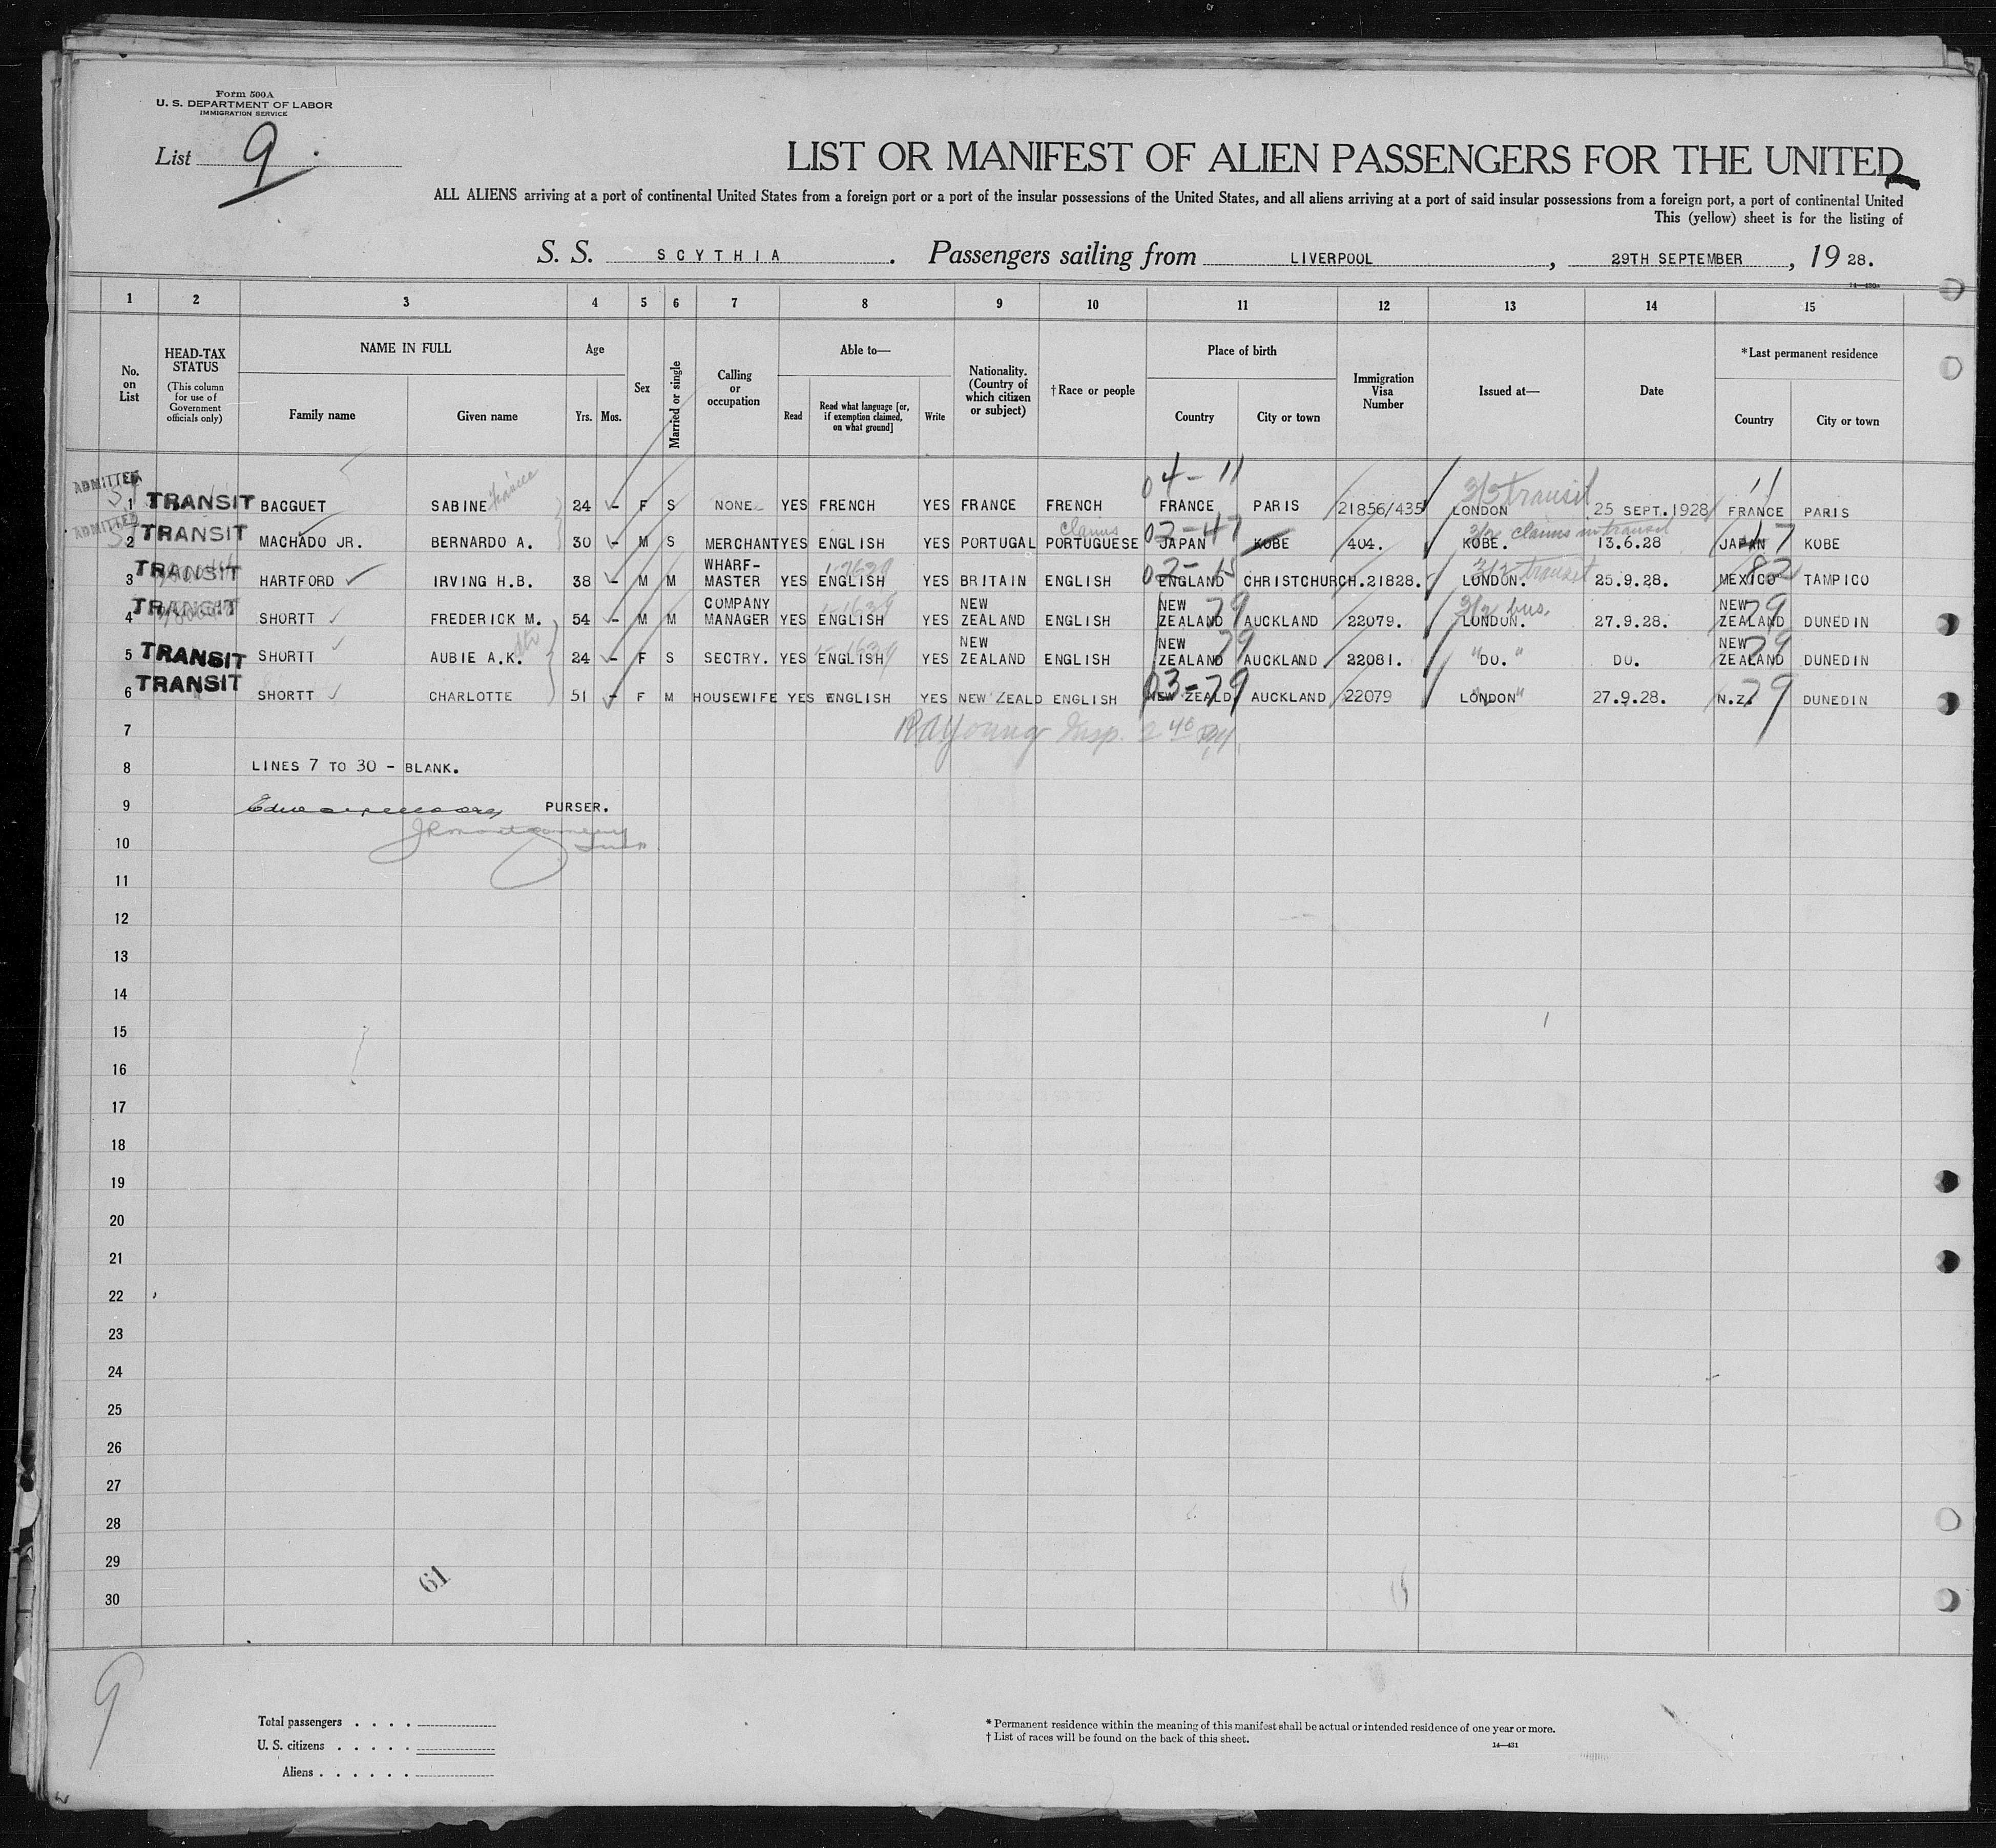 Form 500A
U. S. DEPARTMENT OF LABOR
IMMIGRATION SERVICE
List 9.
LIST OR MANIFEST OF ALIEN PASSENGERS FOR THE UNITED
ALL ALIENS arriving at a port of continental United States from a foreign port or a port of the insular possessions of the United States, and all aliens arriving at a port of said insular possessions from a foreign port, a port of continental United
This (yellow) sheet is for the listing of
S. S. SCYTHIA. Passengers sailing from LIVERPOOL, 29TH SEPTEMBER, 19 28.
1 2 3 4 5 6 7 8 9 10 11 12 13 14 15
No. on List
HEAD-TAX STATUS (This column for use of Government officials only)
NAME IN FULL
Family name Given name
Age
Yrs. Mos.
Sex
Married or single
Calling or occupation
Able to—
Read Read what language [or, if exemption claimed, on what ground] Write
Nationality. (Country of which citizen or subject)
†Race or people
Place of birth
Country City or town
Immigration Visa Number
Issued at—
Date
*Last permanent residence
Country City or town
04-11 3/3 transit 11
ADMITTED
1 TRANSIT BACGUET SABINE 24 - F S NONE YES FRENCH YES FRANCE FRENCH FRANCE PARIS 21856/435 LONDON 25 SEPT.1928 FRANCE PARIS
claims 02-47 3/2 claims in transit 17
ADMITTED
2 TRANSIT MACHADO JR. BERNARDO A. 30 - M S MERCHANT YES ENGLISH YES PORTUGAL PORTUGUESE JAPAN KOBE 404. KOBE. 13.6.28 JAPAN KOBE
02-15 3/2 transit 82
3 TRANSIT HARTFORD IRVING H.B. 38 - M M WHARF-MASTER YES ENGLISH YES BRITAIN ENGLISH ENGLAND CHRISTCHURCH. 21828. LONDON. 25.9.28. MEXICO TAMPICO
79 3/2 bus. 79
4 TRANSIT SHORTT FREDERICK M. 54 - M M COMPANY MANAGER YES ENGLISH YES NEW ZEALAND ENGLISH NEW ZEALAND AUCKLAND 22079. LONDON. 27.9.28. NEW ZEALAND DUNEDIN
79 79
5 TRANSIT SHORTT AUBIE A.K. 24 - F S SECTRY. YES ENGLISH YES NEW ZEALAND ENGLISH NEW ZEALAND AUCKLAND 22081. "DO." DO. NEW ZEALAND DUNEDIN
03-79 79
6 TRANSIT SHORTT CHARLOTTE 51 - F M HOUSEWIFE YES ENGLISH YES NEW ZEALD ENGLISH NEW ZEALD AUCKLAND 22079 LONDON 27.9.28. N.Z. DUNEDIN
7 RAYoung Insp. 2 40 PM
8 LINES 7 TO 30 - BLANK.
9 PURSER.
JRMontgomery
10
11
12
13
14
15
16
17
18
19
20
21
22
23
24
25
26
27
28
29
61
30
9
Total passengers . . . .
U. S. citizens . . . . .
Aliens . . . . . .
* Permanent residence within the meaning of this manifest shall be actual or intended residence of one year or more.
† List of races will be found on the back of this sheet.
14—431